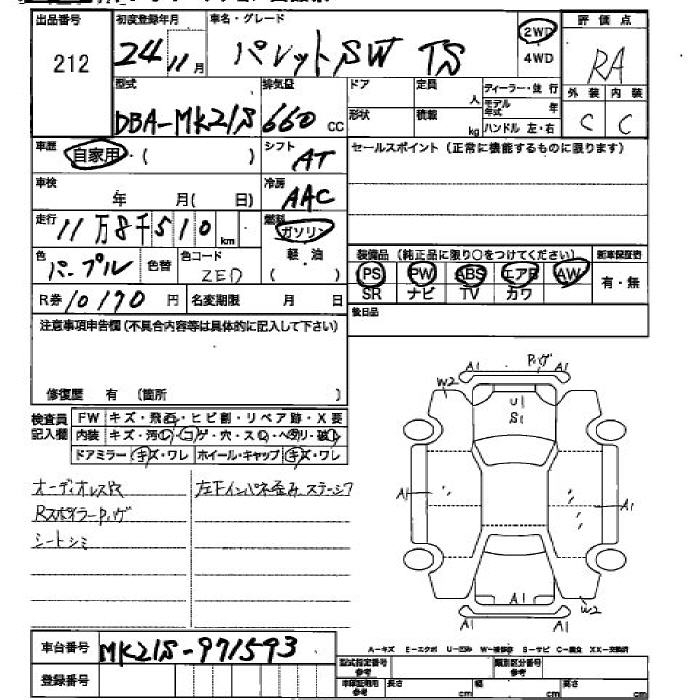 出品番号 212
初度登録年月 24 11月
車名・グレード パレットSW TS
2WD
4WD
評価点 RA
外装 内装
C C
型式 DBA-MK21S
排気量 660 CC
ドア
定員 人
ディーラー・並行
モデル年式 年
形状
積載 kg
ハンドル 左・右
車歴 自家用・( )
シフト AT
セールスポイント(正常に機能するものに限ります)
車検 年 月( 日)
冷房 AAC
走行 11万8千510 km
燃料 ガソリン
軽油
( )
色 パープル
色替
色コード ZED
装備品(純正品に限り○をつけてください)
新車保証書
PS PW ABS エアB AW
SR ナビ TV カワ
有・無
R券 10170 円
名変期限 月 日
後日品
注意事項申告欄(不具合内容等は具体的に記入して下さい)
修復歴 有 (箇所 )
検査員記入欄
FW キズ・飛石・ヒビ割・リペア跡・X要
内装 キズ・汚レ・コゲ・穴・スレ・ヘタリ・破レ
ドアミラー キズ・ワレ ホイール・キャップ キズ・ワレ
オーディオレス穴
Rスポイラーハゲ
シートシミ
左下インパネ歪み ステージ7
A1 ハゲ A1
W2
U1
S1
A1 A1
A1
A1 A1
W2
車台番号 MK21S-971593
登録番号
A-キズ E-エクボ U-凹み W-補修跡 S-サビ C-腐食 XX-交換済
型式指定番号 参考
類別区分番号 参考
車庫証明用 参考
長さ cm
幅 cm
高さ cm